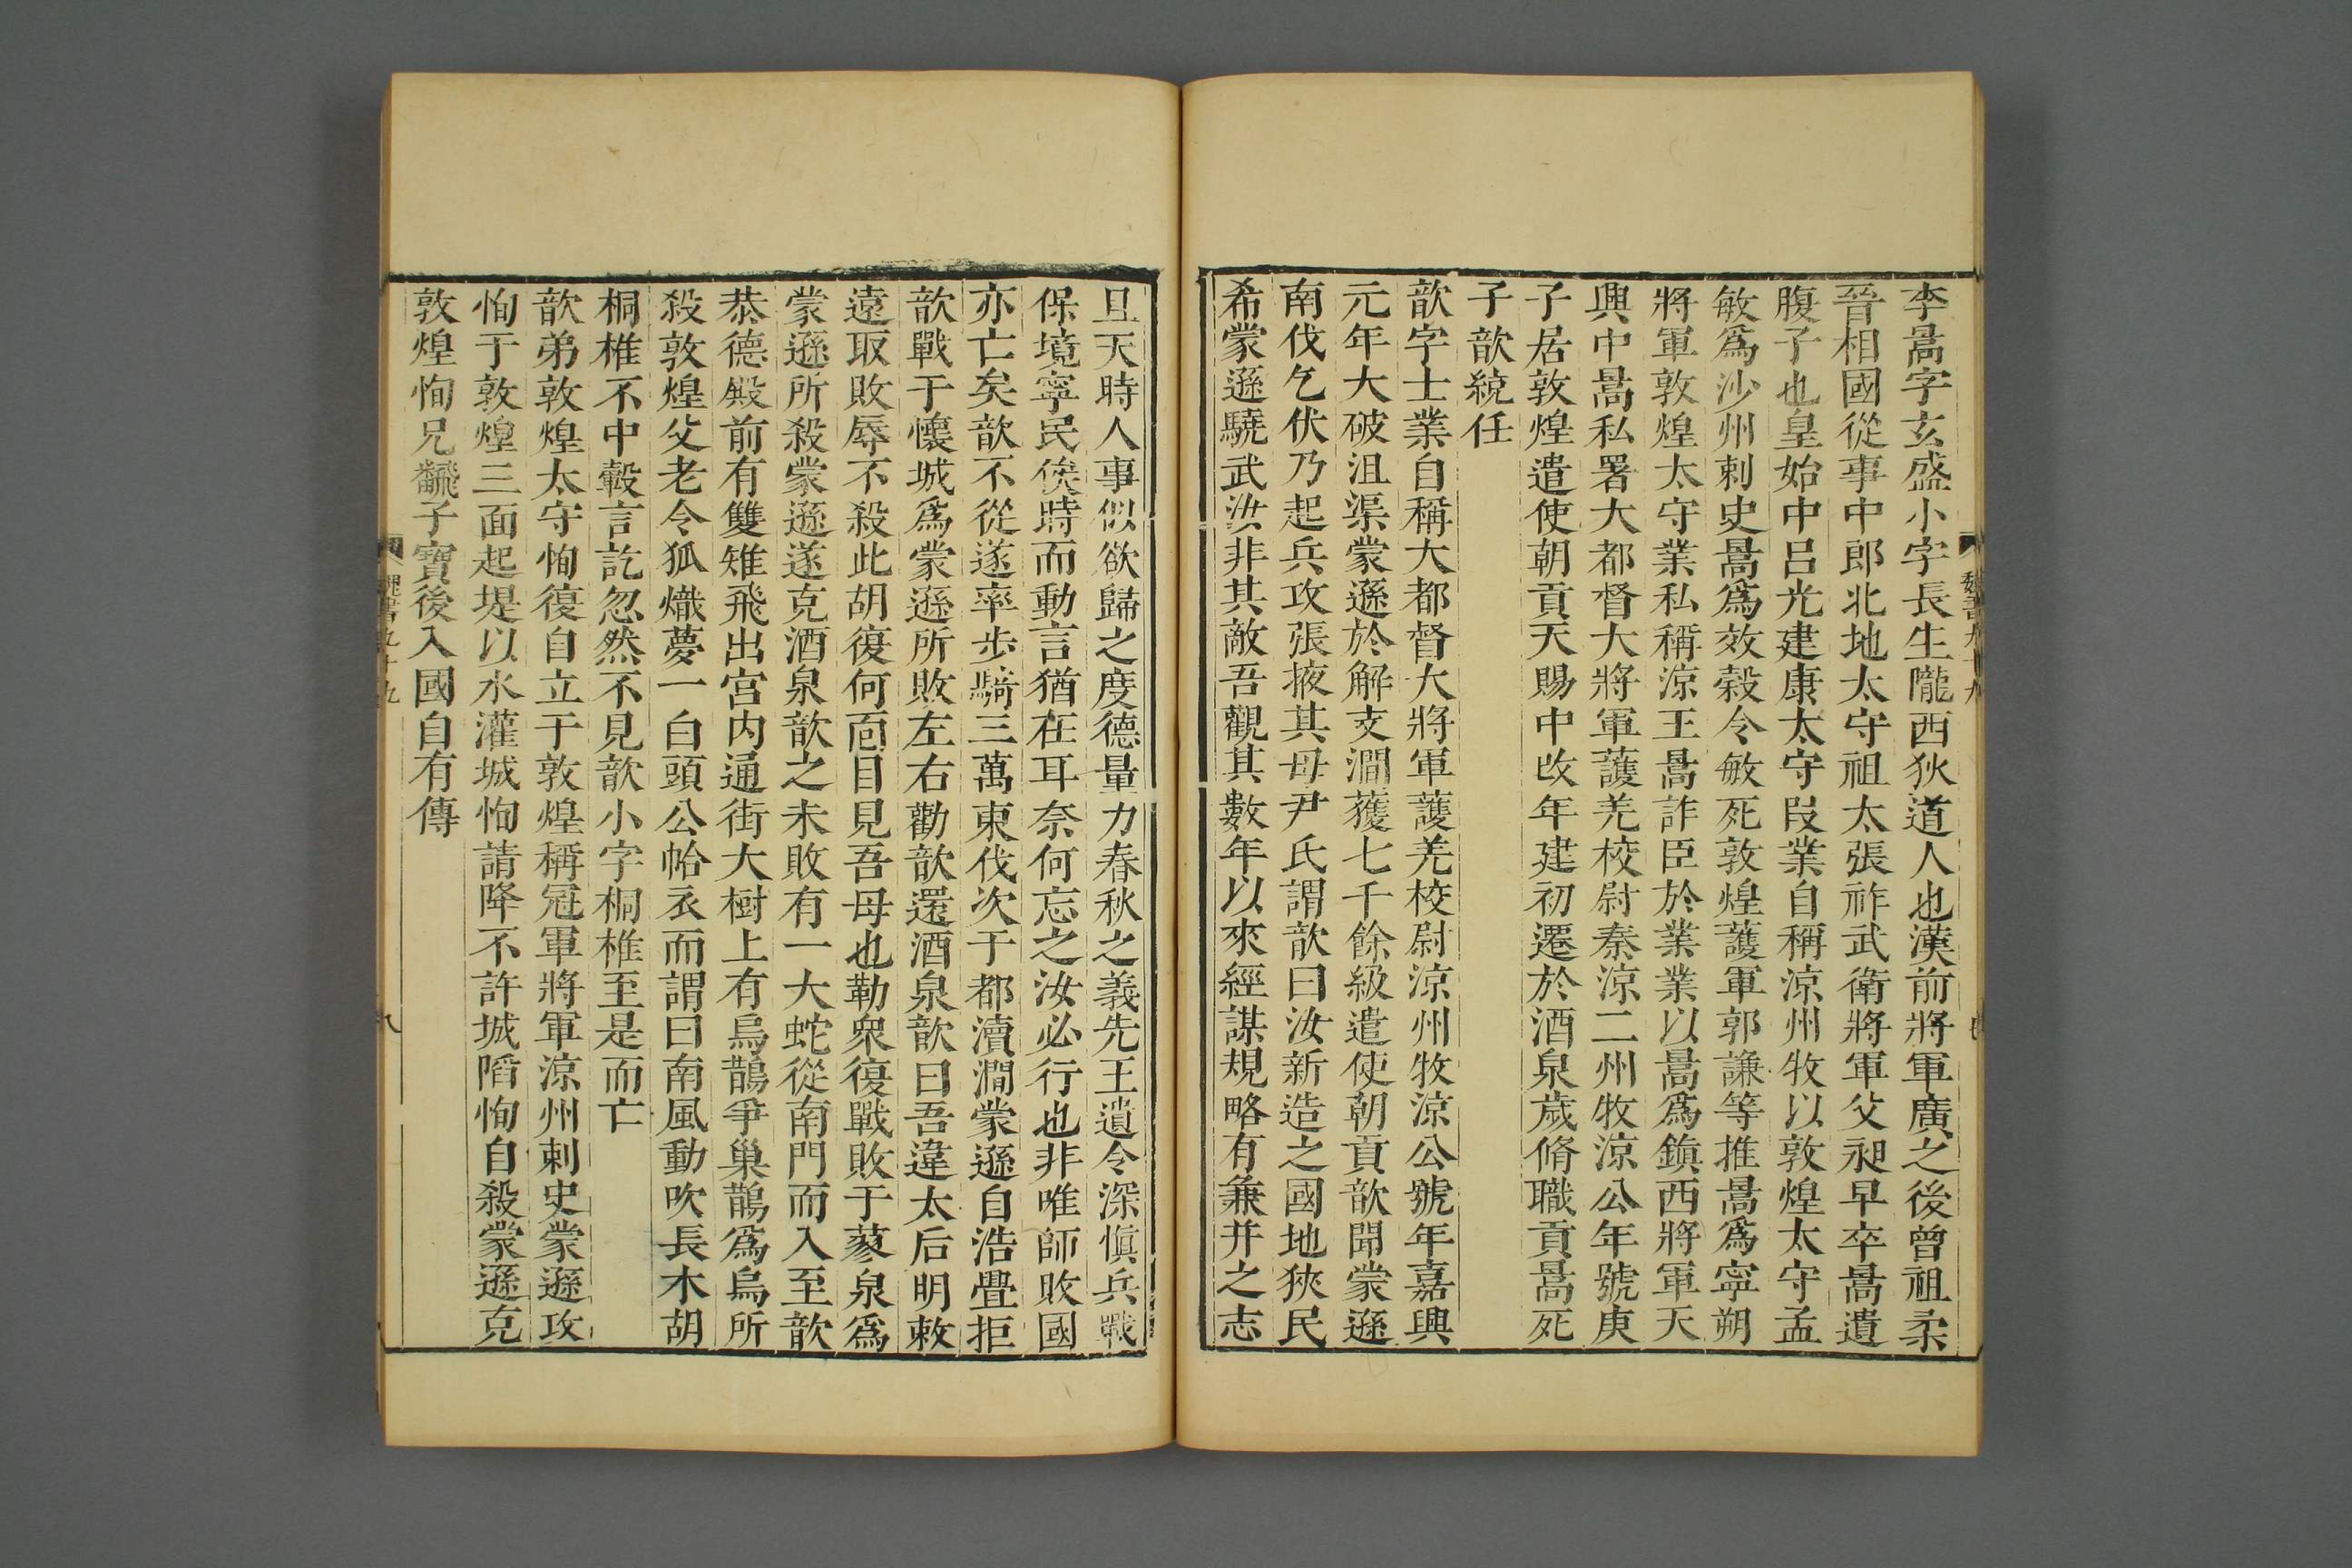 李暠字玄盛小字長生隴西狄道人也漢前將軍廣之後曾祖柔
晉相國從事中郎北地太守祖太張祚武衛將軍父昶早卒暠遺
腹子也皇始中呂光建康太守段業自稱涼州牧以敦煌太守孟
敏爲沙州刺史暠爲效穀令敏死敦煌護軍郭謙等推暠爲寧朔
將軍敦煌太守業私稱涼王暠詐臣於業業以暠爲鎮西將軍天
興中暠私署大都督大將軍護羌校尉秦涼二州牧涼公年號庚
子居敦煌遣使朝貢天賜中改年建初遷於酒泉歲脩職貢暠死
子歆統任
歆字士業自稱大都督大將軍護羌校尉涼州牧涼公號年嘉興
元年大破沮渠蒙遜於解支澗獲七千餘級遣使朝貢歆聞蒙遜
南伐乞伏乃起兵攻張掖其母尹氏謂歆曰汝新造之國地狹民
希蒙遜驍武汝非其敵吾觀其數年以來經謀規略有兼并之志
且天時人事似欲歸之度德量力春秋之義先王遺令深慎兵戰
保境寧民俟時而動言猶在耳奈何忘之汝必行也非唯師敗國
亦亡矣歆不從遂率步騎三萬東伐次于都瀆澗蒙遜自浩亹拒
歆戰于懷城爲蒙遜所敗左右勸歆還酒泉歆曰吾違太后明敕
遠取敗辱不殺此胡復何面目見吾母也勒衆復戰敗于蓼泉爲
蒙遜所殺蒙遜遂克酒泉歆之未敗有一大蛇從南門而入至歆
恭德殿前有雙雉飛出宮內通街大樹上有烏鵲爭巢鵲爲烏所
殺敦煌父老令狐熾夢一白頭公帢衣而謂曰南風動吹長木胡
桐椎不中轂言訖忽然不見歆小字桐椎至是而亡
歆弟敦煌太守恂復自立于敦煌稱冠軍將軍涼州刺史蒙遜攻
恂于敦煌三面起堤以水灌城恂請降不許城陷恂自殺蒙遜克
敦煌恂兄飜子寶後入國自有傳
魏書九十九
八